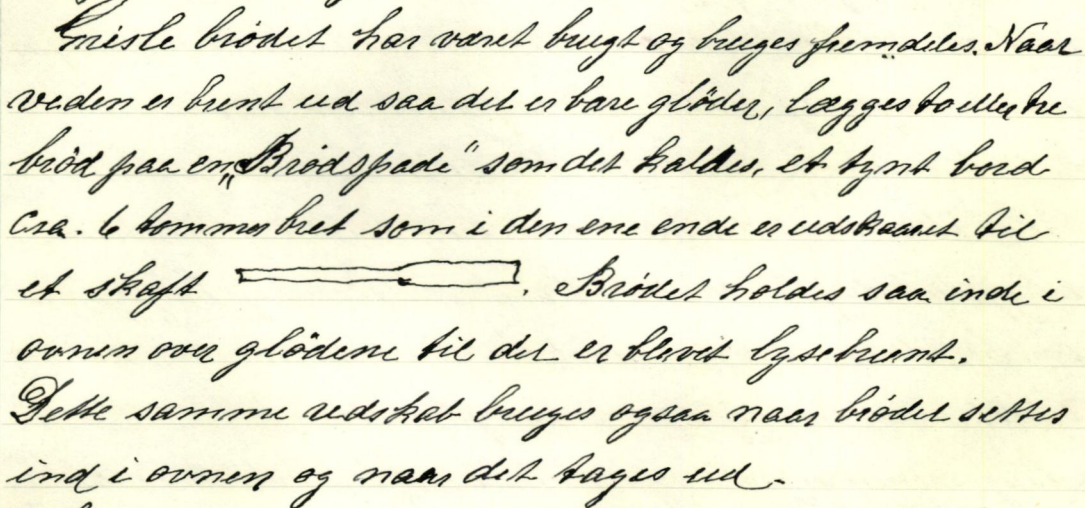 Grisle brødet har været brugt og bruges fremdeles. Naar
veden er brent ud saa det er bare glöder, lægges to eller tre
brød paa en „Brødspade" som det kaldes, et tynt bord
cra. 6 tommer bret som i den ene ende er udskaaret til
et skaft . Brødet holdes saa inde i
ovnen over glödene til det er blevet lysebrunt.
Dette samme redskab bruges ogsaa naar brødet settes
ind i ovnen og naar det tages ud.